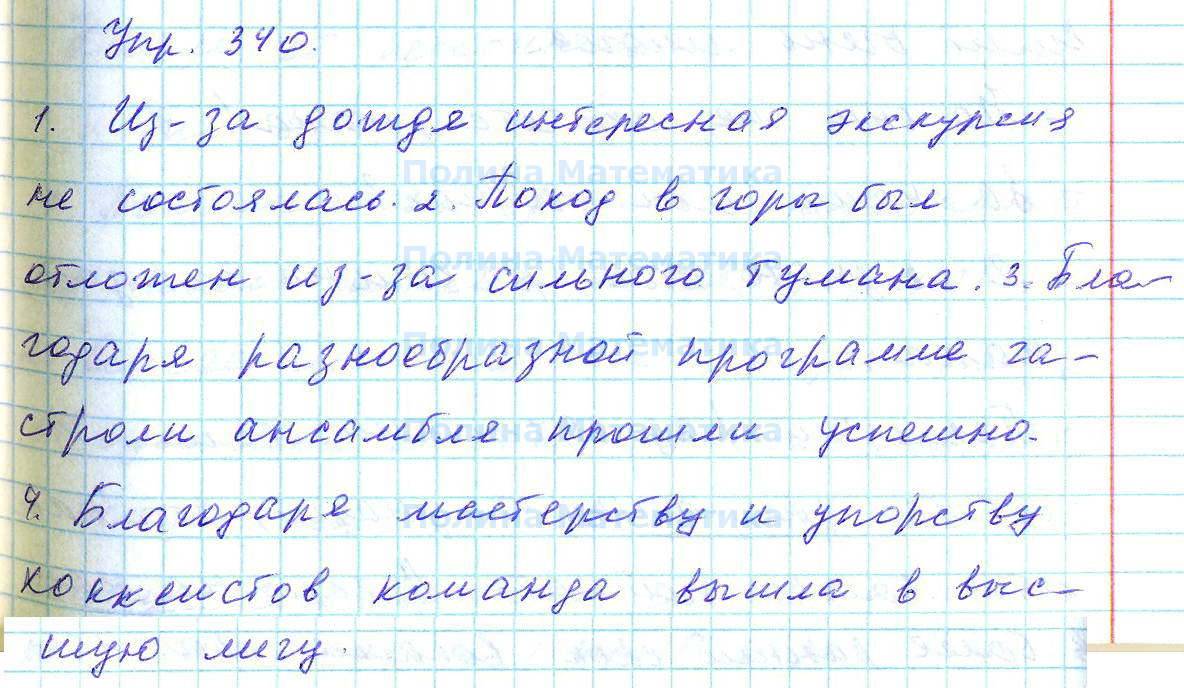 Упр. 340.
1. Из-за дождя интересная экскурсия
Полина Математика
не состоялась. 2. Поход в горы был
Полина Математика
отложен из-за сильного тумана. 3. Бла-
годаря разнообразной программе га-
Полина Математика
строли ансамбля прошли успешно.
Полина Математика
4. Благодаря мастерству и упорству
Полина Математика
хоккеистов команда вышла в выс-
шую лигу.